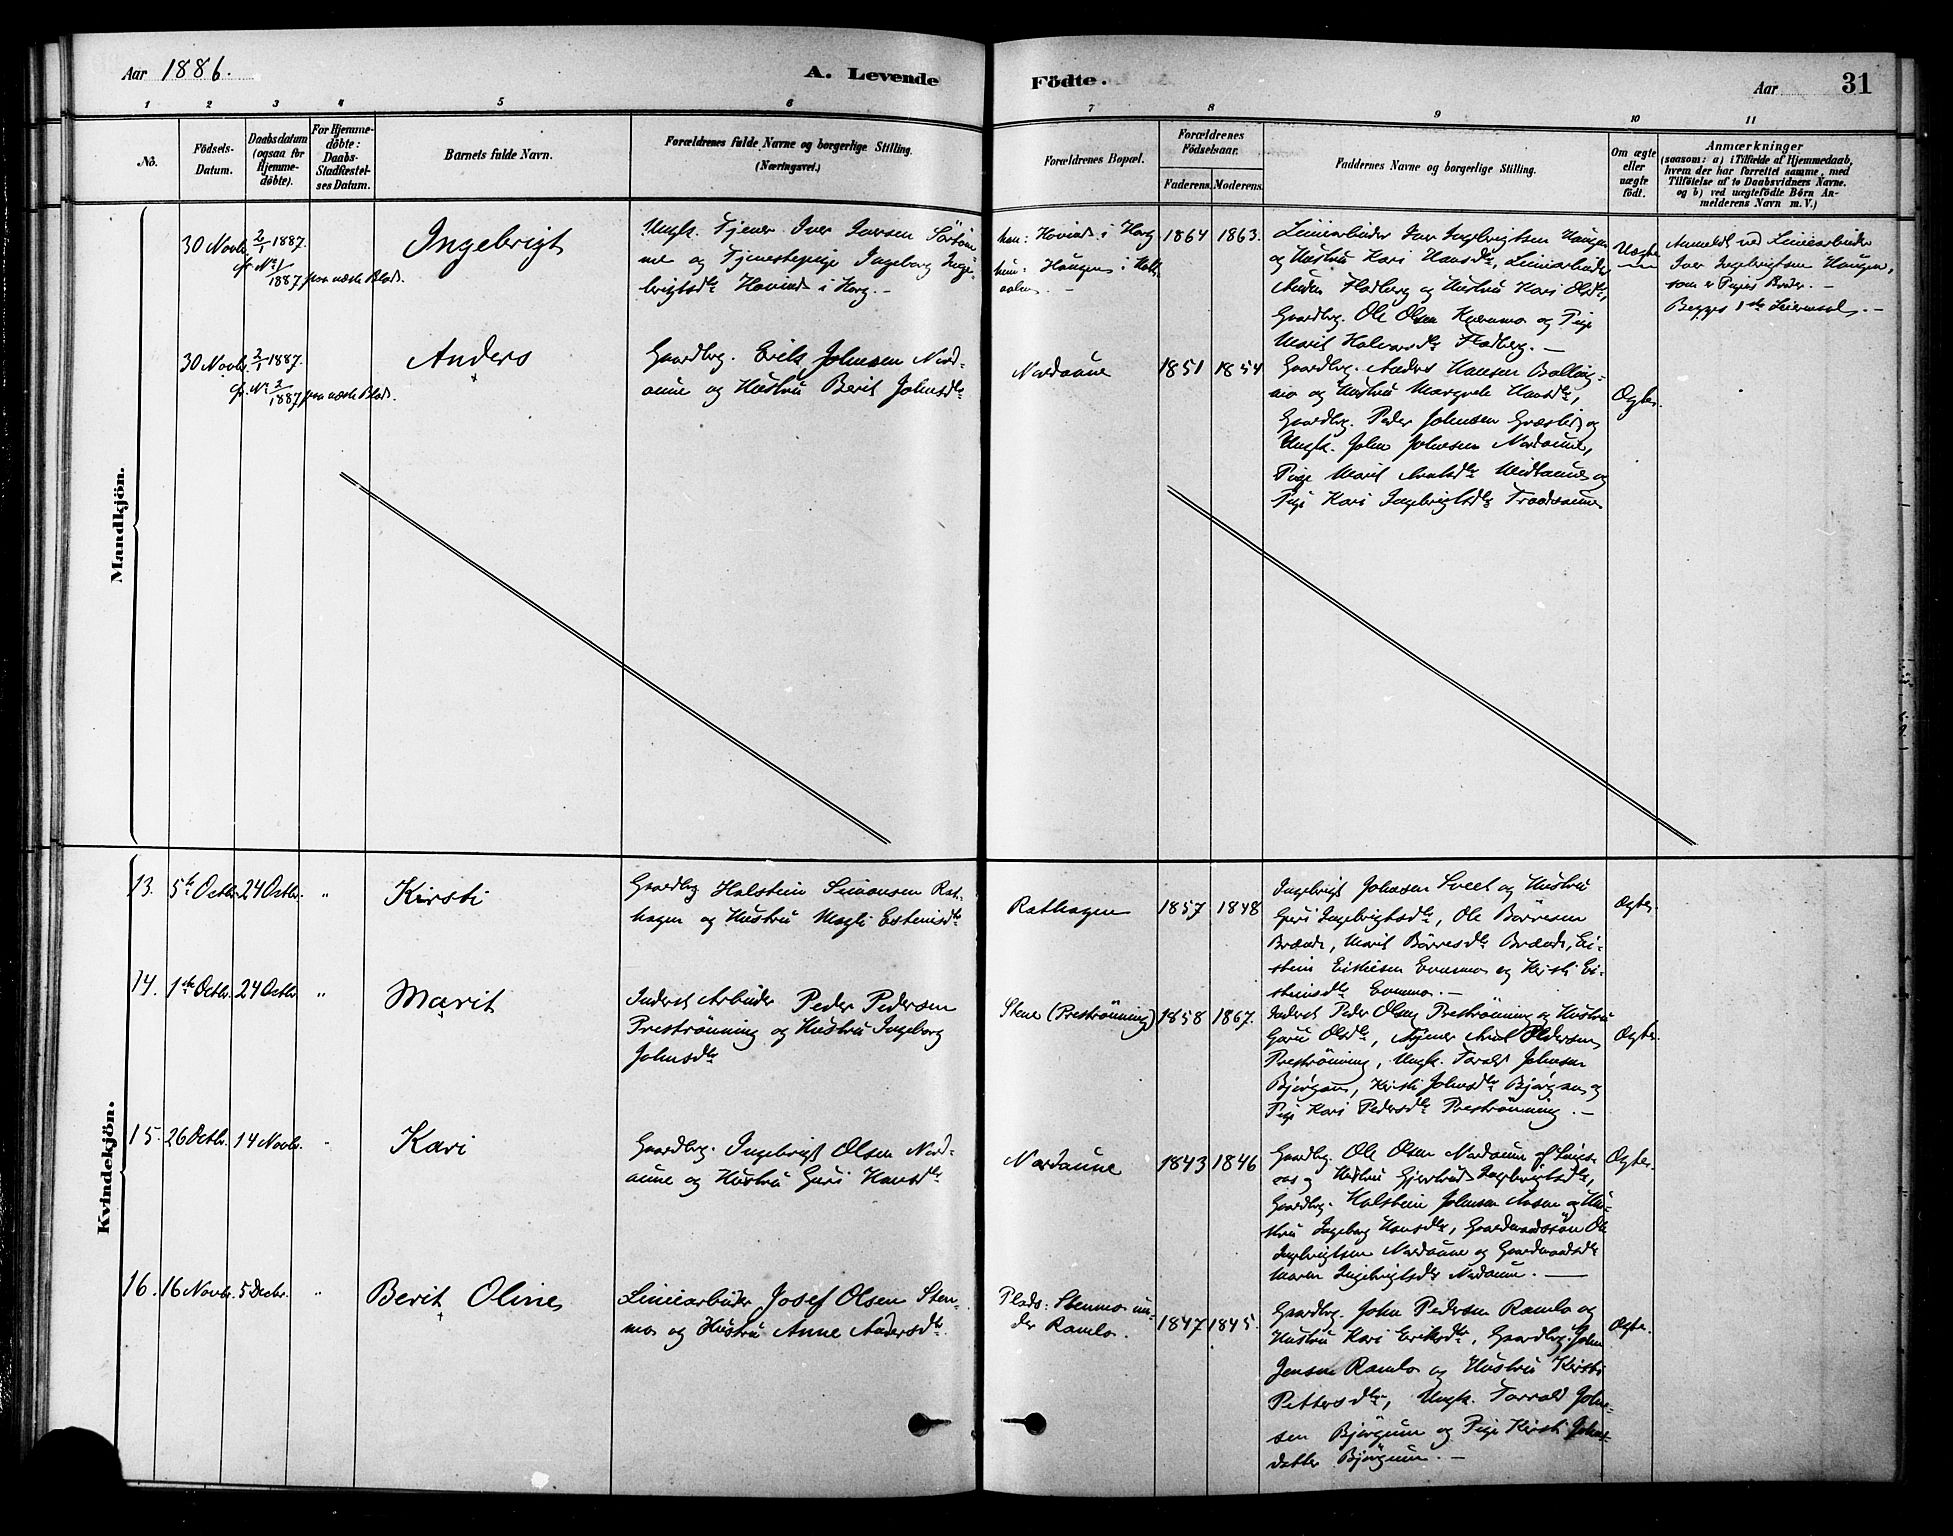 Aar 1886.
A. Levende
Födte.
Aar
31
1
2
3
4
5
6
7
8
9
10
11
No.
Födsels-
Datum.
Daabsdatum
(ogsaa for
Hjemme-
döbte).
For Hjemme-
döbte:
Daabs-
Stadfæstel-
ses Datum.
Barnets fulde Navn.
Forældrenes fulde Navne og borgerlige Stilling.
(Næringsvei.)
Forældrenes Bopæl.
Forældrenes
Födselsaar.
Faderens. Moderens.
Faddernes Navne og borgerlige Stilling.
Om ægte
eller
uægte
födt.
Anmærkninger
(saasom: a) i Tilfælde af Hjemmedaab,
hvem der har forrettet samme, med
Tilföielse af to Daabsvidners Navne.
og b) ved uægtefödte Börn An-
melderens Navn m. V.)
Mandkjön.
30 Novbr. 2/1 1887.
cfr. No 1/1887 paa næste Blad.
Ingebrigt
Ungk. Tjener Iver Iversen
og Tjenestepige Ingeborg Inge-
brigtsdtr Hovind i Horg.-
han: Hovind i Horg
hun: Haugen i Holt-
aalen.-
1864 1863.
Liniearbeider Iver Ingebrigtsen Haugen
og Hustru Kari Hansdtr, Liniearbeider
Anders Fladberg og Hustru Kari Olsdtr,
Gaardbrg. Ole Olsen og Pige
Marit Halvorsdtr Fladberg.-
Uægte
Anmeldt ved Liniearbeider
Iver Ingebrigtsen Haugen,
som er Pigens Broder.-
Begges 1ste Leiermaal.-
30 Novbr. 2/1 1887.
cfr. No 2/1887 paa næste Blad.
Anders
Gaardbrg. Erik Johnsen Nord-
aune og Hustru Berit Johnsdtr
Nordaune
1851 1854
Gaardbrg. Anders Hansen Balling-
mo og Hustru Margrete Hansdtr,
Gaardbrg. Peder Johnsen Græsli og
Ungk. John Johnsen Nordaune,
Pige Marit Arntsdtr Midtaune og
Pige Kari Ingebrigtsdtr Troodsaune
Ægte.
Kvindekjön.
13. 5te Octbr. 24 Octbr. "
Kirsti
Gaardbrg Halstein Simonsen Rat-
hagen og Hustru Magli Estensdtr
Rathagen
1857 1848
Ingebrigt Johnsen Sveet og Hustru
Guri Ingebrigtsdtr, Ole Börresen
Brænde, Marit Börresdtr Brænde, Ei-
stein Eistensen Evenmo og Kirsti Ei-
steinsdtr Evenmo.-
Ægte.
14. 1ste Octbr. 24 Octbr "
Marit
Inderst Arbeider Peder Pedersen
Preströnning og Hustru Ingeborg
Johnsdtr
Stene (Preströnning)
1858 1867.
Inderst Peder Olsen Preströnning og Hustru
Guru Olsdtr, Tjener Arnt Pedersen
Preströnning, Ungk. Torald Johnsen
Bjørgan, Kirsti Johnsdtr Bjørgan og
Pige Kari Pedersdtr Preströnning.-
Ægte.
15. 26 Octbr. 14 Novbr. "
Kari
Gaardbrg. Ingebrigt Olsen Nord-
aune og Hustru Guri Hansdtr
Nordaune
1843 1846
Gaardbrg. Ole Olsen Nordaune af
og Hustru Gjertrud Ingebrigtsdtr,
Gaardbrg. Halstein Johnsen Aasen og Hu-
stru Ingeborg Hansdtr, Gaardmandssön Ole
Ingebrigtsen Nordaune og Gaardmandsdtr
Maren Ingebrigtsdtr Nordaune.-
Ægte.
16. 16 Novbr. 5 Decbr. "
Berit Oline
Liniearbeider Josef Olsen Sten-
mo og Hustru Anne Andersdtr.
Plads: Stenmo un-
der Ramlo.
1847 1845.
Gaardbrg. John Pedersen Ramlo og
Hustru Kari Eriksdtr, Gaardbrg. John
Jensen Ramlo og Hustru Kirsti
Pettersdtr, Ungk. Torrald John-
sen Bjørgum og Pige Kirsti Johns-
datter Bjørgum.-
Ægte.